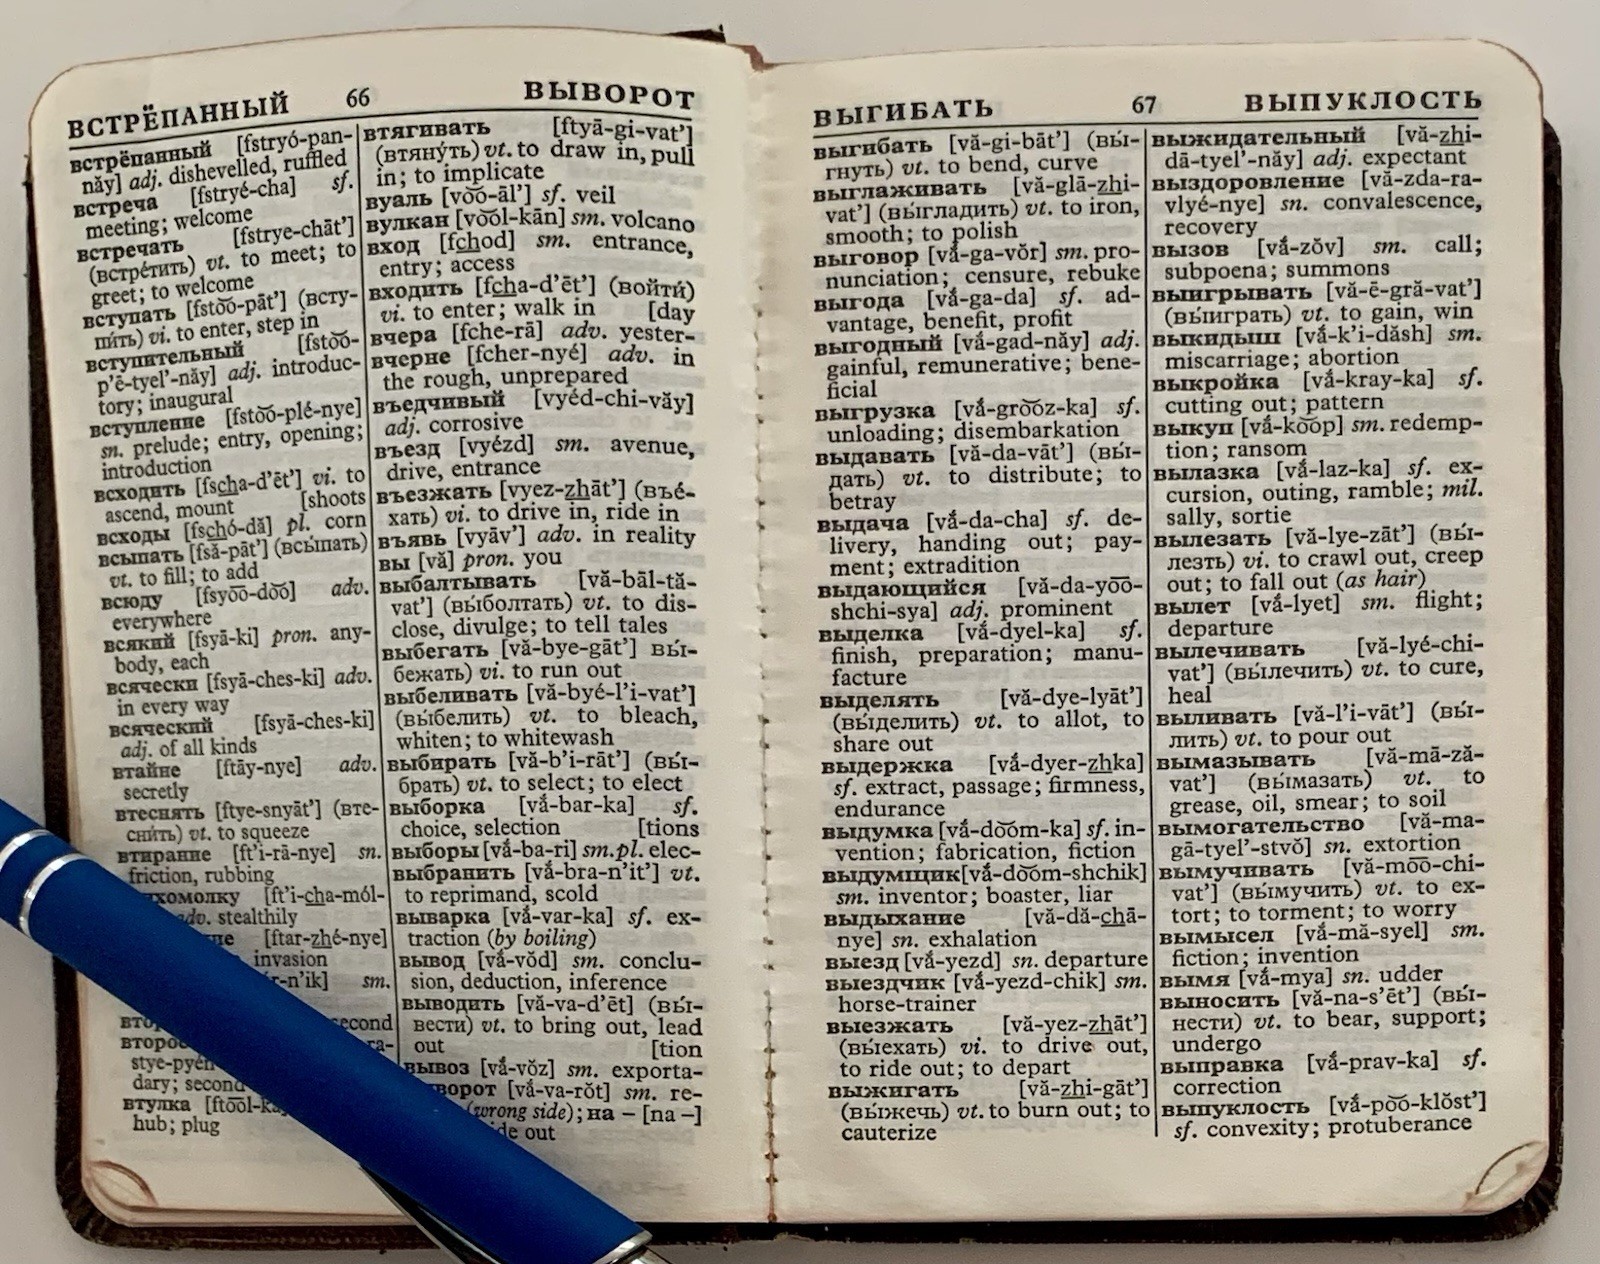 ВСТРЁПАННЫЙ 66 ВЫВОРОТ
встрёпанный [fstryó-pan-
năy] adj. dishevelled, ruffled
встреча [fstryé-cha] sf.
meeting; welcome
встречать [fstrye-chāt']
(встре́тить) vt. to meet; to
greet; to welcome
вступать [fsto͞o-pāt'] (всту-
пи́ть) vi. to enter, step in
вступительный [fsto͝o-
p'ē-tyel'-năy] adj. introduc-
tory; inaugural
вступление [fsto͝o-plé-nye]
sn. prelude; entry, opening;
introduction
всходить [fscha-d'ēt'] vi. to
ascend, mount [shoots
всходы [fschó-dă] pl. corn
всыпать [fsă-pāt'] (всы́пать)
vt. to fill; to add
всюду [fsyo͞o-do͝o] adv.
everywhere
всякий [fsyā-ki] pron. any-
body, each
всячески [fsyā-ches-ki] adv.
in every way
всяческий [fsyā-ches-ki]
adj. of all kinds
втайне [ftāy-nye] adv.
secretly
втеснять [ftye-snyāt'] (вте-
сни́ть) vt. to squeeze
втирание [ft'i-rā-nye] sn.
friction, rubbing
хомолку [ft'i-cha-mól-
adv. stealthily
[ftar-zhé-nye]
invasion
r-n'ik] sm.
second
ra-
stye-pyén
dary; second
втулка [fto͞ol-ka]
hub; plug
втягивать [ftyā-gi-vat']
(втяну́ть) vt. to draw in, pull
in; to implicate
вуаль [vo͝o-āl'] sf. veil
вулкан [vo͝ol-kān] sm. volcano
вход [fchod] sm. entrance,
entry; access
входить [fcha-d'ēt'] (войти́)
vi. to enter; walk in [day
вчера [fche-rā] adv. yester-
вчерне [fcher-nyé] adv. in
the rough, unprepared
въедчивый [vyéd-chi-văy]
adj. corrosive
въезд [vyézd] sm. avenue,
drive, entrance
въезжать [vyez-zhāt'] (въе́-
хать) vi. to drive in, ride in
въявь [vyāv'] adv. in reality
вы [vă] pron. you
выбалтывать [vă-bāl-tă-
vat'] (вы́болтать) vt. to dis-
close, divulge; to tell tales
выбегать [vă-bye-gāt'] вы́-
бежать) vi. to run out
выбеливать [vă-byé-l'i-vat']
(вы́белить) vt. to bleach,
whiten; to whitewash
выбирать [vă-b'i-rāt'] (вы́-
брать) vt. to select; to elect
выборка [vắ-bar-ka] sf.
choice, selection [tions
выборы [vắ-ba-ri] sm.pl. elec-
выбранить [vắ-bra-n'it'] vt.
to reprimand, scold
выварка [vắ-var-ka] sf. ex-
traction (by boiling)
вывод [vắ-vŏd] sm. conclu-
sion, deduction, inference
выводить [vă-va-d'ēt] (вы́-
вести) vt. to bring out, lead
out [tion
вывоз [vắ-vŏz] sm. exporta-
ворот [vắ-va-rŏt] sm. re-
(wrong side); на – [na –]
out
ВЫГИБАТЬ 67 ВЫПУКЛОСТЬ
выгибать [vă-gi-bāt'] (вы́-
гнуть) vt. to bend, curve
выглаживать [vă-glā-zhi-
vat'] (вы́гладить) vt. to iron,
smooth; to polish
выговор [vắ-ga-vŏr] sm. pro-
nunciation; censure, rebuke
выгода [vắ-ga-da] sf. ad-
vantage, benefit, profit
выгодный [vắ-gad-năy] adj.
gainful, remunerative; bene-
ficial
выгрузка [vắ-gro͝oz-ka] sf.
unloading; disembarkation
выдавать [vă-da-vāt'] (вы́-
дать) vt. to distribute; to
betray
выдача [vắ-da-cha] sf. de-
livery, handing out; pay-
ment; extradition
выдающийся [vă-da-yo͞o-
shchi-sya] adj. prominent
выделка [vắ-dyel-ka] sf.
finish, preparation; manu-
facture
выделять [vă-dye-lyāt']
(вы́делить) vt. to allot, to
share out
выдержка [vắ-dyer-zhka]
sf. extract, passage; firmness,
endurance
выдумка [vắ-do͝om-ka] sf. in-
vention; fabrication, fiction
выдумщик [vắ-do͝om-shchik]
sm. inventor; boaster, liar
выдыхание [vă-dă-chā-
nye] sn. exhalation
выезд [vắ-yezd] sn. departure
выездчик [vắ-yezd-chik] sm.
horse-trainer
выезжать [vă-yez-zhāt']
(вы́ехать) vi. to drive out,
to ride out; to depart
выжигать [vă-zhi-gāt']
(вы́жечь) vt. to burn out; to
cauterize
выжидательный [vă-zhi-
dā-tyel'-năy] adj. expectant
выздоровление [vă-zda-ra-
vlyé-nye] sn. convalescence,
recovery
вызов [vắ-zŏv] sm. call;
subpoena; summons
выигрывать [vă-ē-gră-vat']
(вы́играть) vt. to gain, win
выкидыш [vắ-k'i-dăsh] sm.
miscarriage; abortion
выкройка [vắ-kray-ka] sf.
cutting out; pattern
выкуп [vắ-ko͝op] sm. redemp-
tion; ransom
вылазка [vắ-laz-ka] sf. ex-
cursion, outing, ramble; mil.
sally, sortie
вылезать [vă-lye-zāt'] (вы́-
лезть) vi. to crawl out, creep
out; to fall out (as hair)
вылет [vắ-lyet] sm. flight;
departure
вылечивать [vă-lyé-chi-
vat'] (вы́лечить) vt. to cure,
heal
выливать [vă-l'i-vāt'] (вы́-
лить) vt. to pour out
вымазывать [vă-mā-ză-
vat'] (вы́мазать) vt. to
grease, oil, smear; to soil
вымогательство [vă-ma-
gā-tyel'-stvŏ] sn. extortion
вымучивать [vă-mo͞o-chi-
vat'] (вы́мучить) vt. to ex-
tort; to torment; to worry
вымысел [vắ-mă-syel] sm.
fiction; invention
вымя [vắ-mya] sn. udder
выносить [vă-na-s'ēt'] (вы́-
нести) vt. to bear, support;
undergo
выправка [vắ-prav-ka] sf.
correction
выпуклость [vắ-po͝o-klŏst']
sf. convexity; protuberance